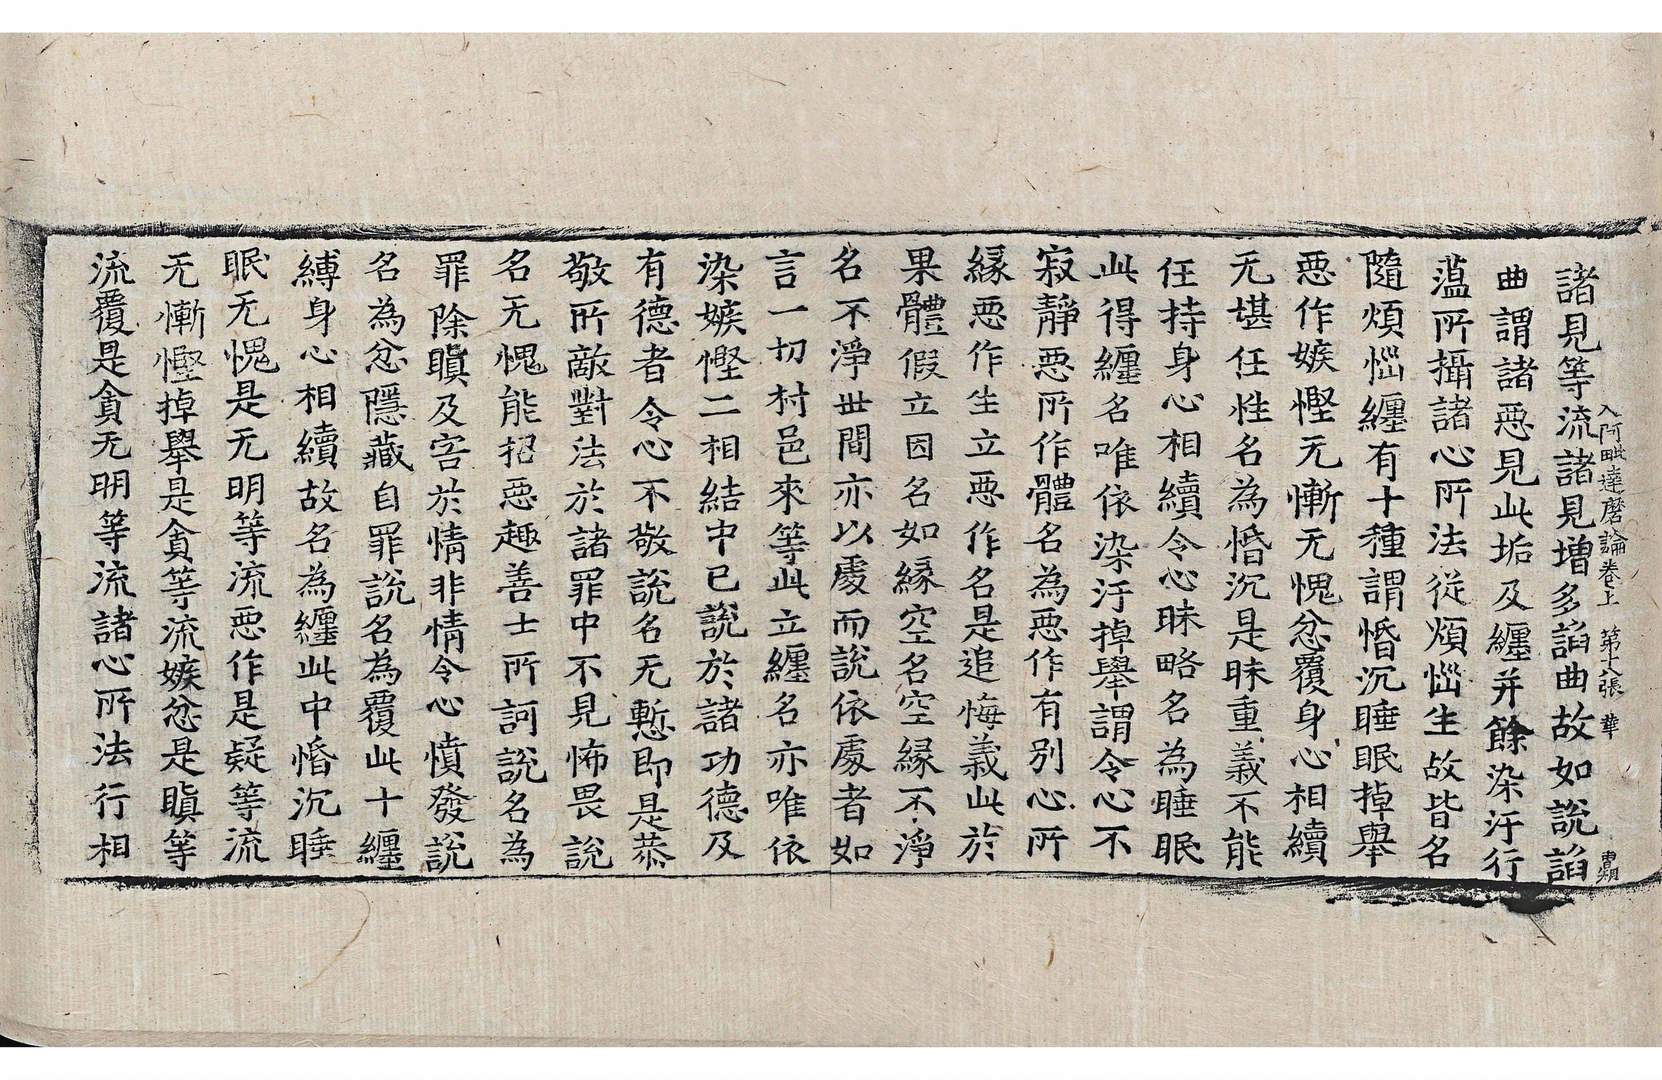 入阿毗達磨論卷上 第十八張 華
諸見等流諸見增多諂曲故如說諂
曲謂諸惡見此垢及纏并餘染汙行
薀所攝諸心所法從煩惱生故皆名
隨煩惱纏有十種謂惛沉睡眠掉舉
惡作嫉慳无慚无愧忿覆身心相續
无堪任性名為惛沉是昧重義不能
任持身心相續令心昧略名為睡眠
此得纏名唯依染汙掉舉謂令心不
寂靜惡所作體名為惡作有別心所
緣惡作生立惡作名是追悔義此於
果體假立因名如緣空名空緣不淨
名不淨世間亦以處而說依處者如
言一切村邑來等此立纏名亦唯依
染嫉慳二相結中已說於諸功德及
有德者令心不敬說名无慙即是恭
敬所敵對法於諸罪中不見怖畏說
名无愧能招惡趣善士所訶說名為
罪除瞋及害於情非情令心憤發說
名為忿隱藏自罪說名為覆此十纏
縛身心相續故名為纏此中惛沉睡
眠无愧是无明等流惡作是疑等流
无慚慳掉舉是貪等流嫉忿是瞋等
流覆是貪无明等流諸心所法行相